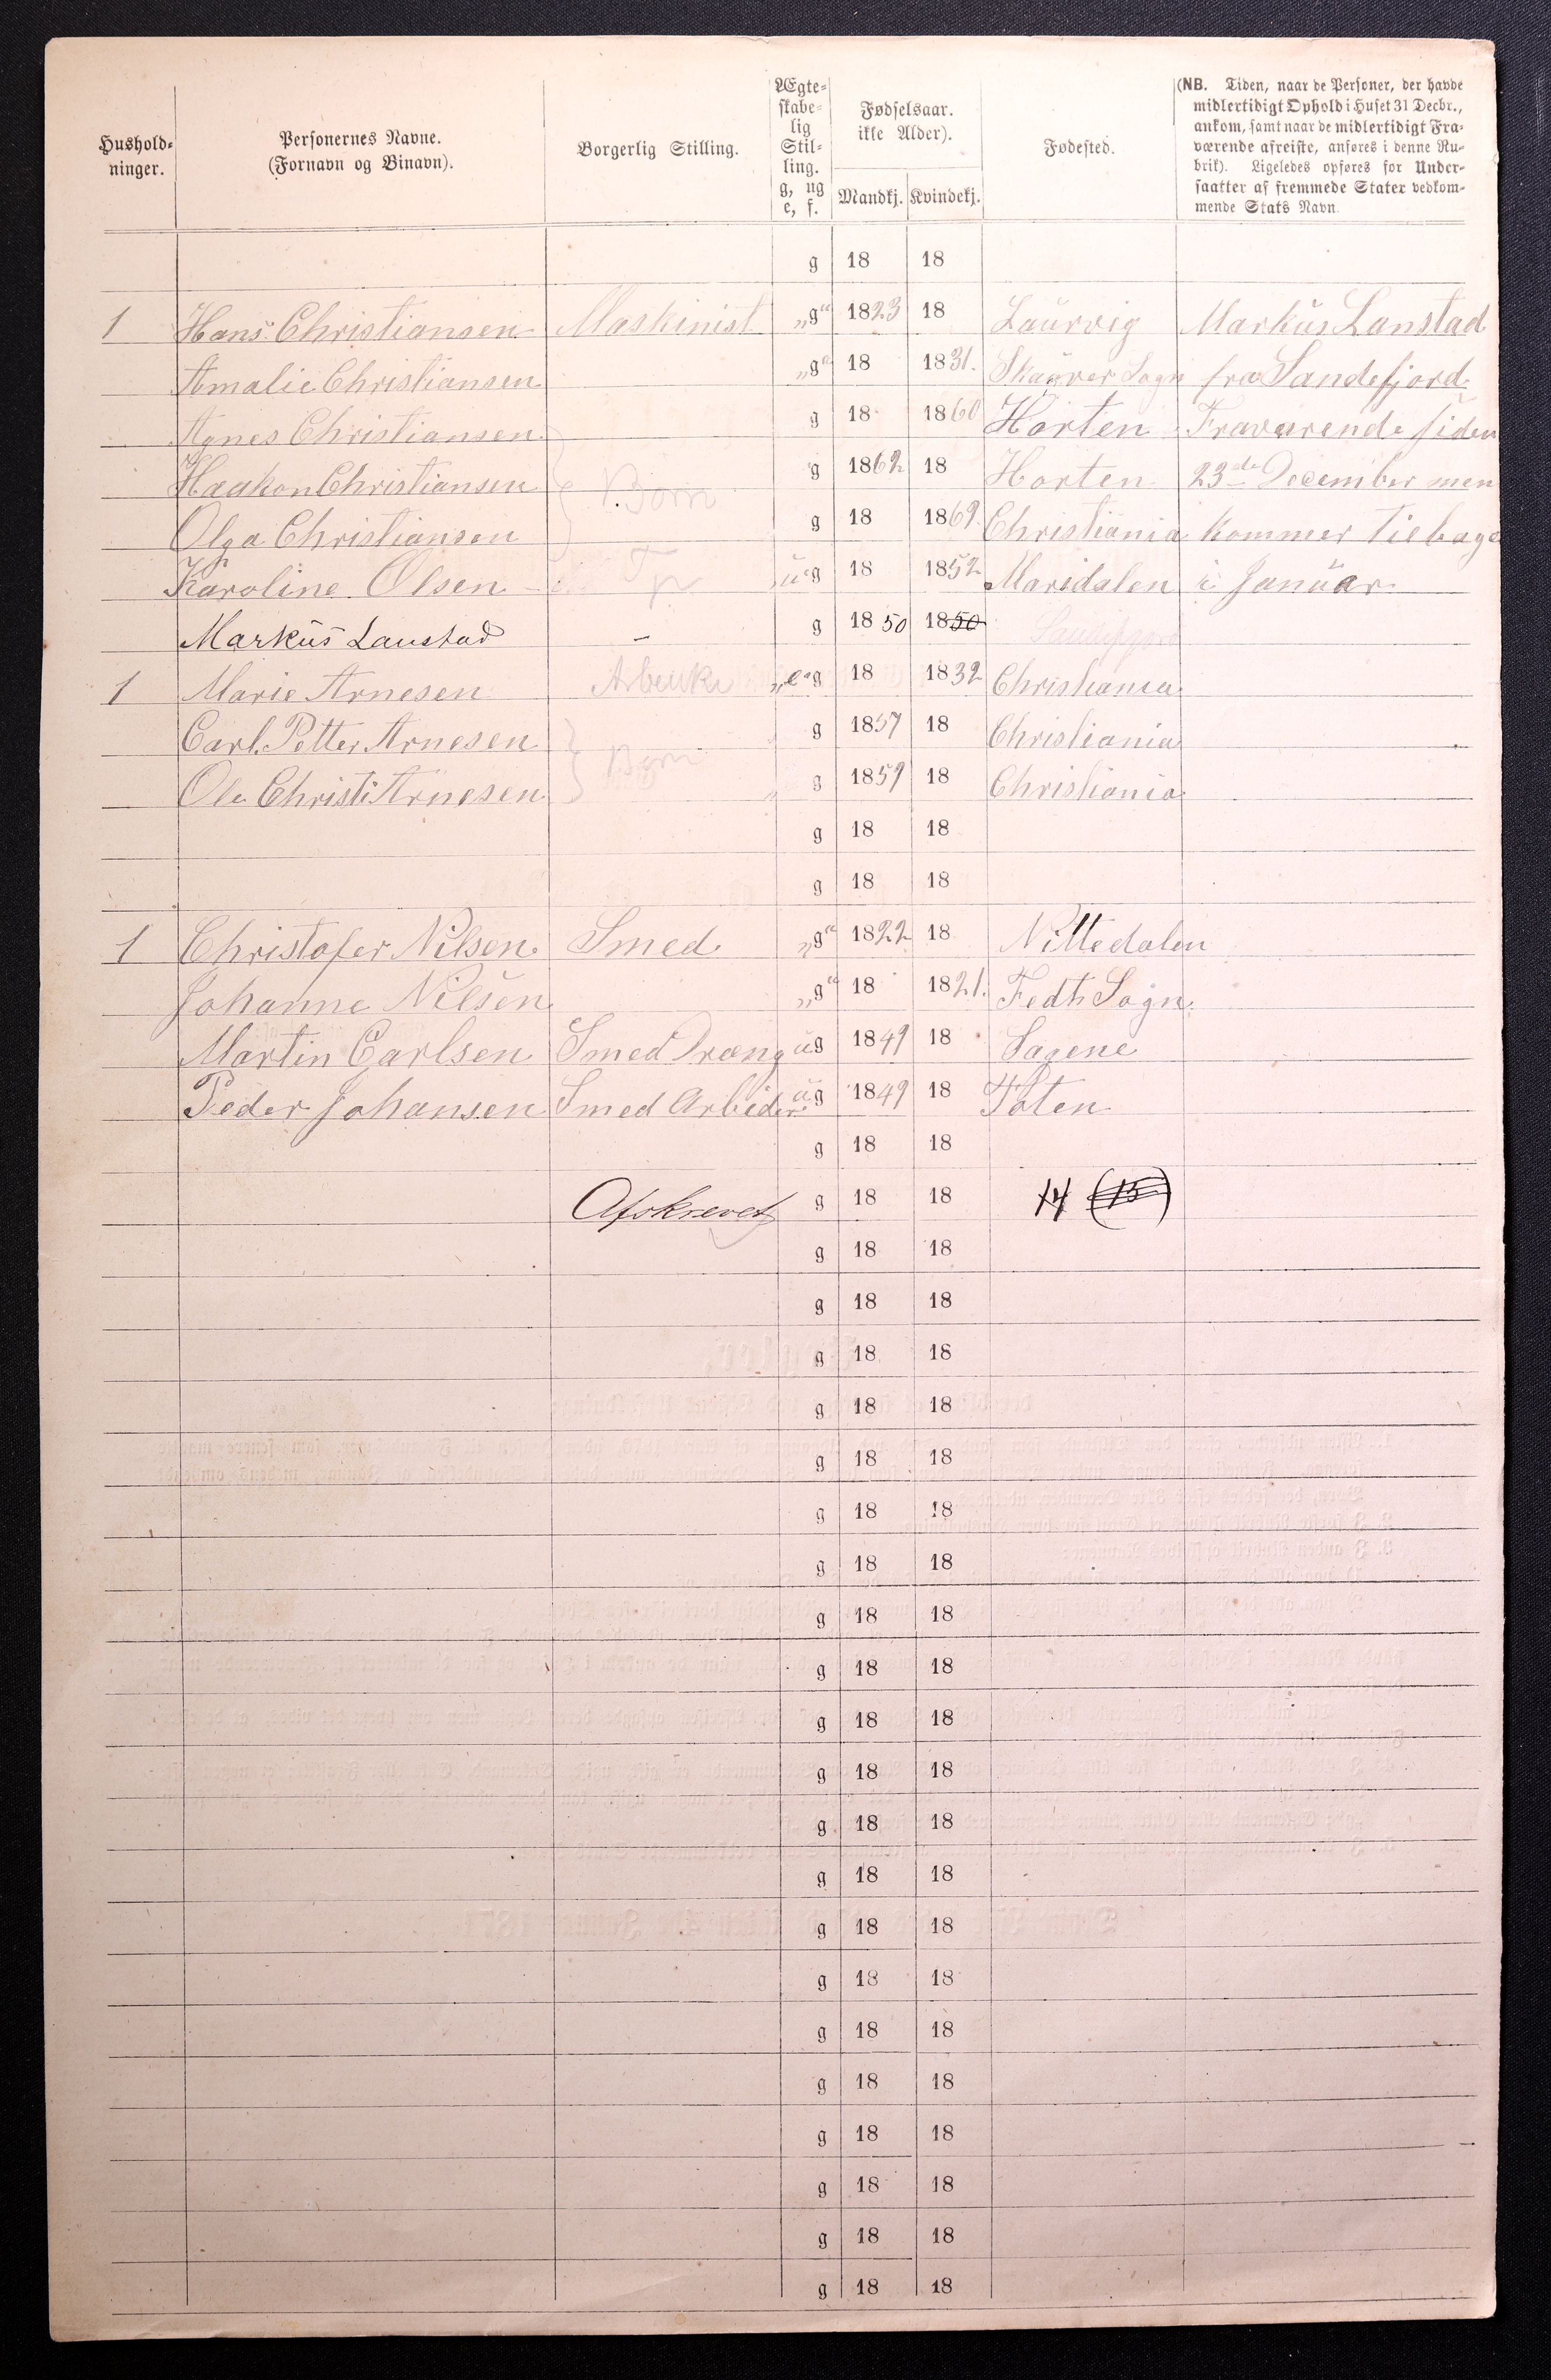 Hushold=
ninger.
Personernes Navne.
(Fornavn og Binavn).
Borgerlig Stilling.
Ægte=
skabe=
lig
Stil=
ling.
g, ug
e, f.
Fødselsaar.
ikke Alder).
Mandkj. Kvindekj.
Fødested.
(NB. Tiden, naar de Personer, der havde
midlertidigt Ophold i Huset 31 Decbr.,
ankom, samt naar de midlertidigt Fra=
værende afreiste, anføres i denne Ru=
brik). Ligeledes opføres for Under=
saatter af fremmede Stater vedkom=
mende Stats Navn.
g 18 18
1 Hans Christiansen Maskinist „g“ 1823 18 Laurvig Markus Lanstad
Amalie Christiansen „g“ 18 1831. Sogn fra Sandefjord
Agnes Christiansen g 18 1860 Horten Fraværende siden
Haakon Christiansen Børn g 1862 18 Horten 23de December men
Olga Christiansen g 18 1869 Christiania kommer tilbage
Karoline Olsen ug 18 1852 Maridalen i Januar
Markus Laustad - g 1850 1850
1 Marie Arnesen „e“g 18 1832 Christiania
Carl Petter Arnesen g 1857 18 Christiania
Ole Christi Arnesen Børn g 1859 18 Christiania
g 18 18
g 18 18
1 Christofer Nilsen Smed „g“ 1822 18 Nittedalen
Johanne Nilsen „g“ 18 1821. Fedts Sogn
Martin Carlsen Smed Dræng ug 1849 18 Sagene
Peder Johansen Smed Arbeider ug 1849 18 Toten
g 18 18
Afskrevet g 18 18 14 (15)
g 18 18
g 18 18
g 18 18
g 18 18
g 18 18
g 18 18
g 18 18
g 18 18
g 18 18
g 18 18
g 18 18
g 18 18
g 18 18
g 18 18
g 18 18
g 18 18
g 18 18
g 18 18
g 18 18
g 18 18
g 18 18